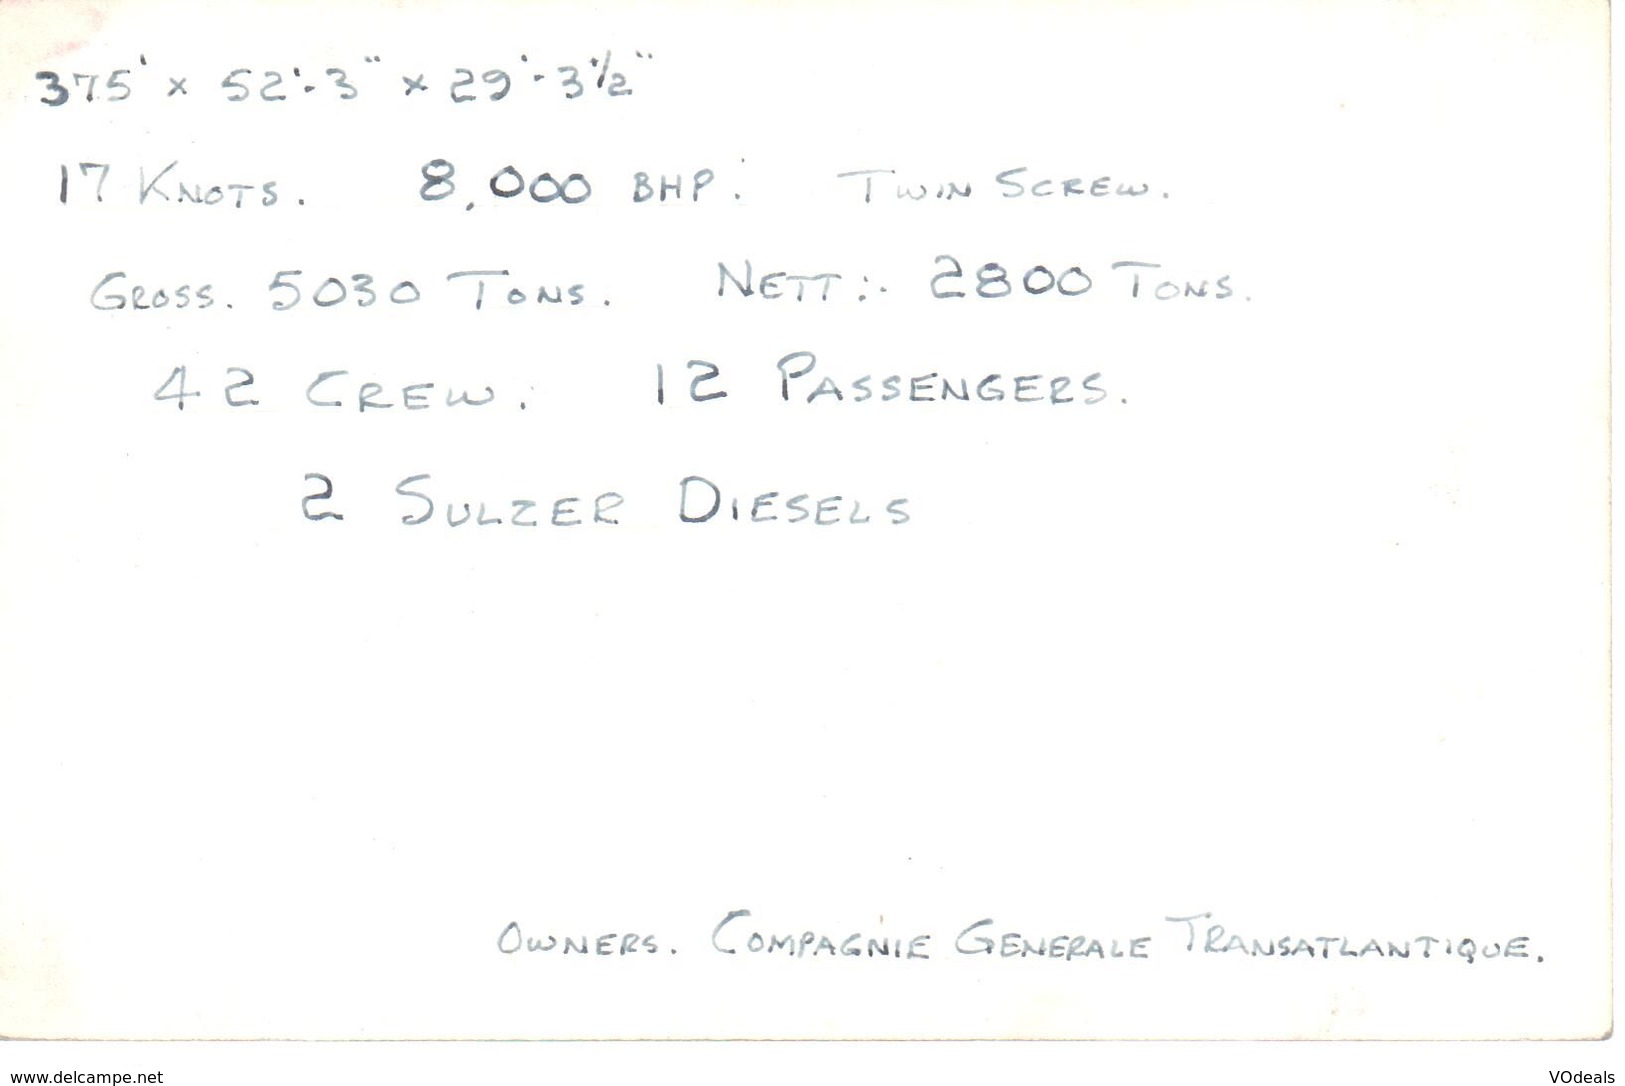 375' x 52'-3" x 29'-3½"
17 KNOTS. 8,000 BHP. TWIN SCREW.
GROSS. 5030 TONS. NETT:- 2800 TONS.
42 CREW. 12 PASSENGERS.
2 SULZER DIESELS
OWNERS. COMPAGNIE GENERALE TRANSATLANTIQUE.
www.delcampe.net VOdeals